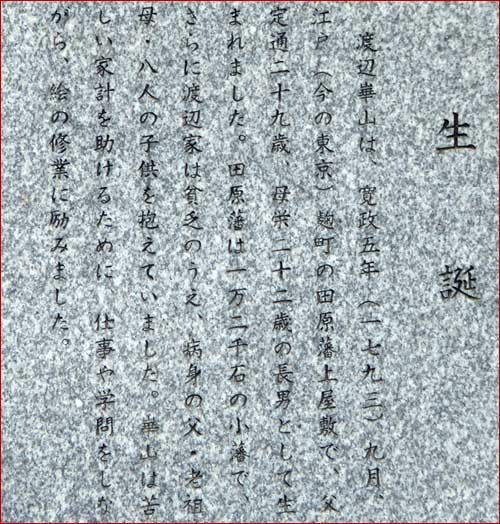 生誕
渡辺崋山は、寛政五年（一七九三）九月、
江戸（今の東京）麹町の田原藩上屋敷で、父
定通二十九歳　母栄二十二歳の長男として生
まれました。田原藩は一万二千石の小藩で、
さらに渡辺家は貧乏のうえ、病身の父・老祖
母・八人の子供を抱えていました。崋山は苦
しい家計を助けるために　仕事や学問をしな
がら、絵の修業に励みました。